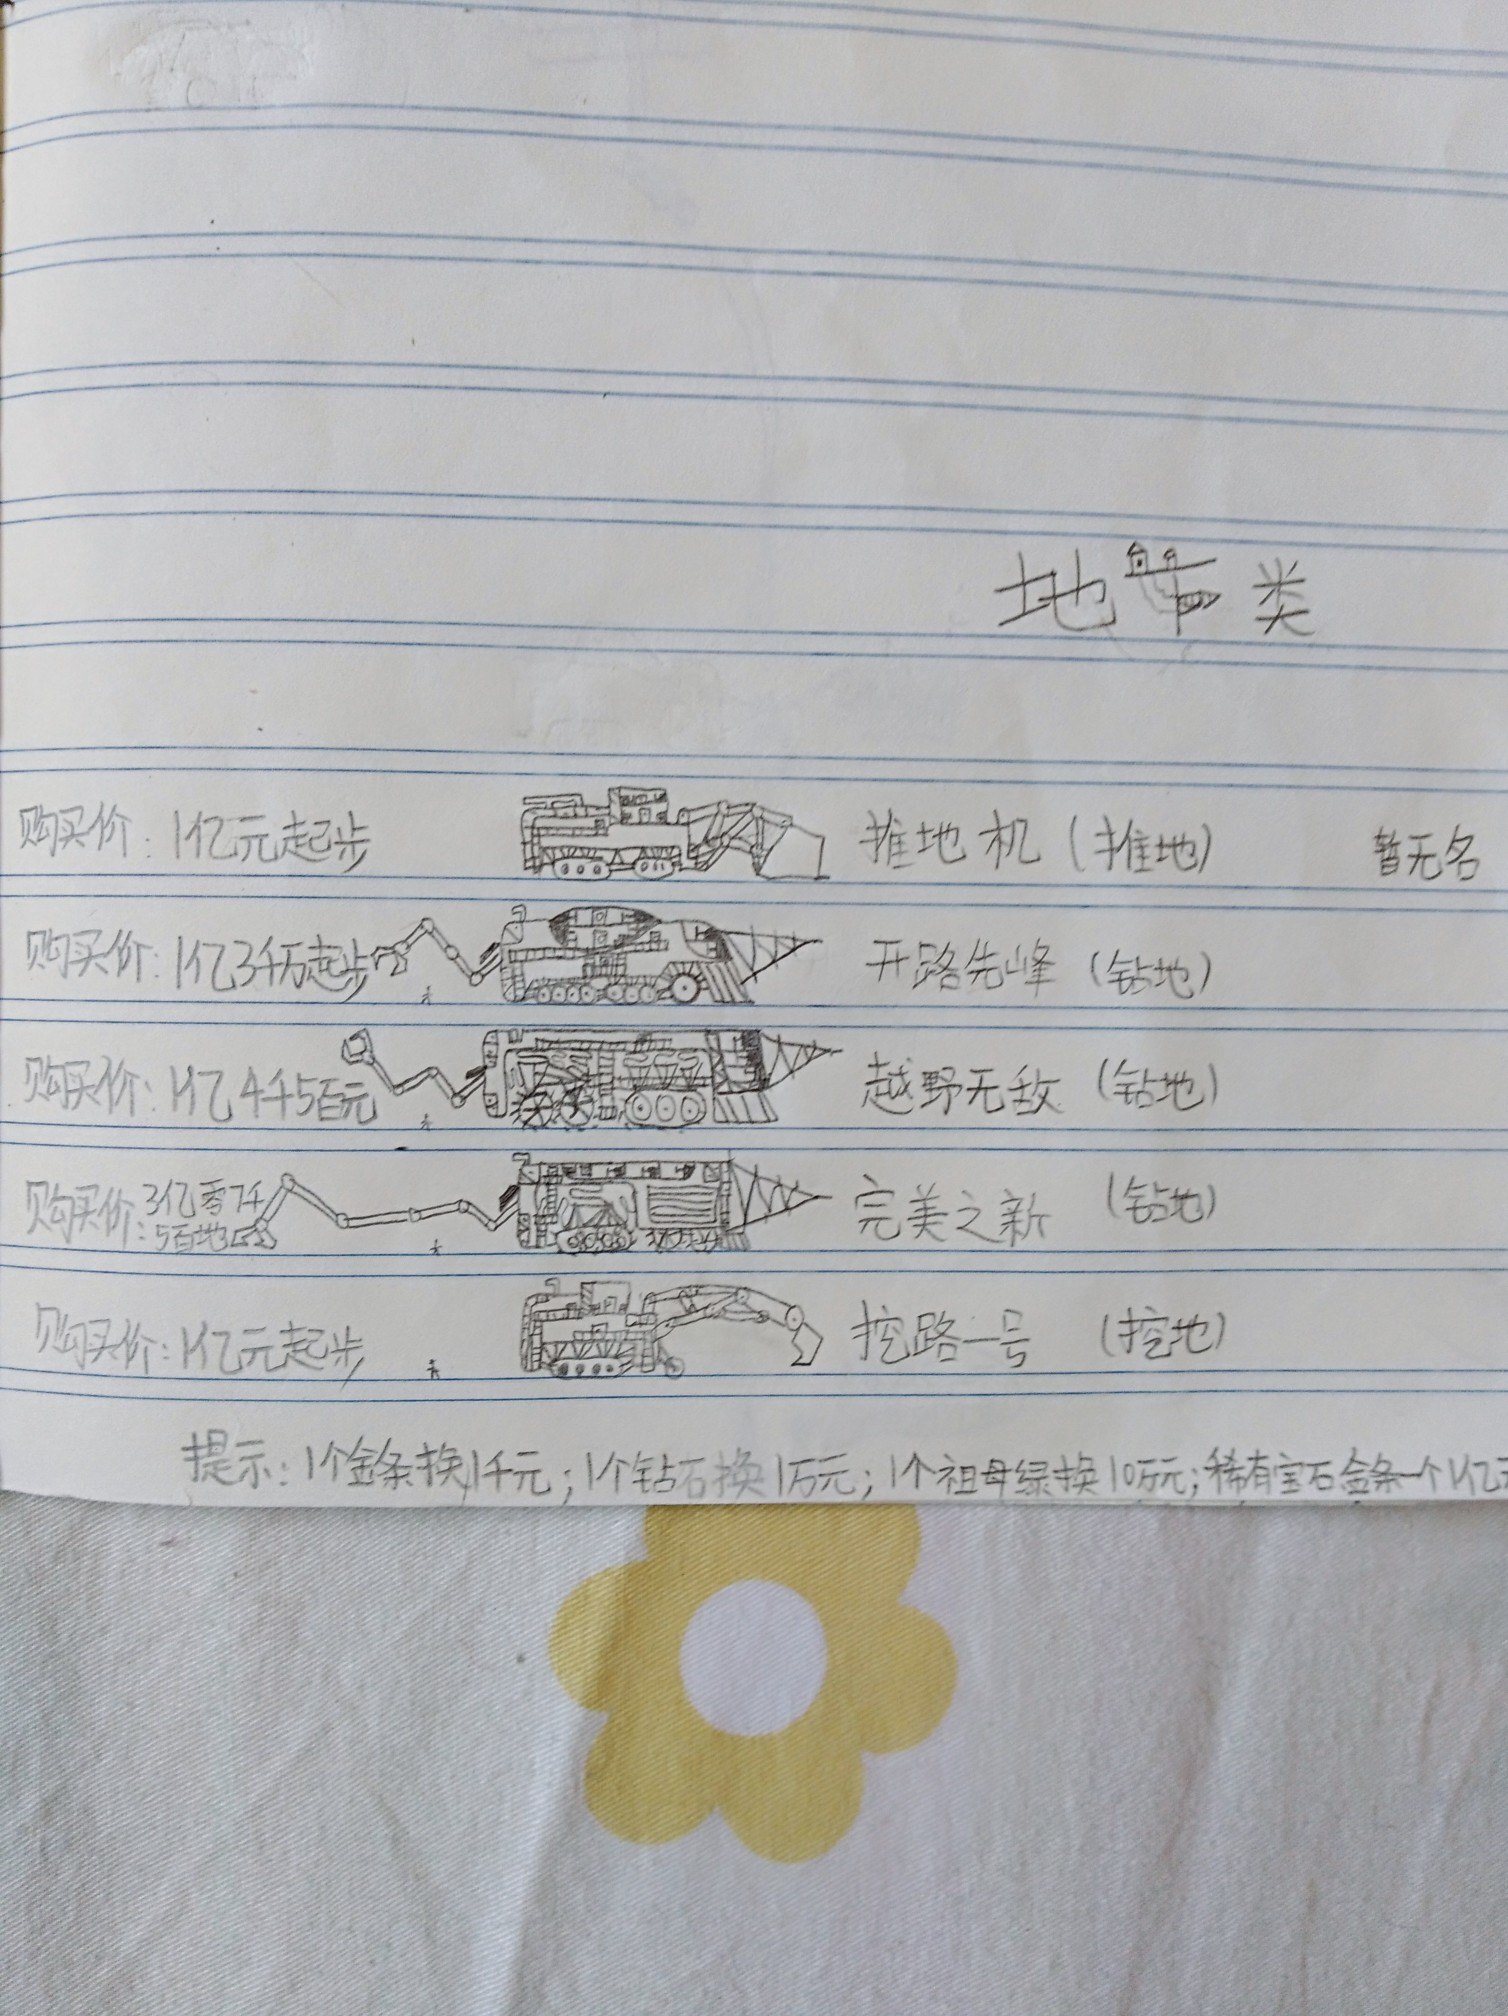 地带类
购买价：1亿元起步 推地机（推地） 暂无名
购买价：1亿3千万起步 开路先峰（钻地）
购买价：1亿4千5百元 越野无敌（钻地）
购买价：3亿零7千5百地 完美之新（钻地）
购买价：1亿元起步 挖路一号（挖地）
提示：1个金条换1千元；1个钻石换1万元；1个祖母绿换10万元；稀有宝石金条一个1亿